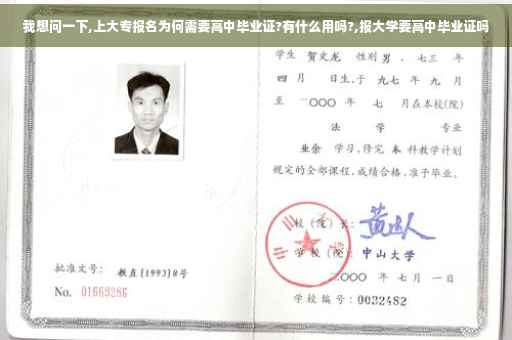 我想问一下,上大专报名为何需要高中毕业证?有什么用吗?,报大学要高中毕业证吗
学生 贺文龙 性别 男 , 七三 年
四 月 日生,于 九七 年 九 月
至 二〇〇〇 年 七 月在本校(院)
法 学 专业
业余 学习,修完 本 科教学计划
规定的全部课程,成绩合格,准予毕业。
校(院)长:
学校(院): 中山大学
二〇〇〇 年 七 月 一 日
学校编号: 0032482
批准文号: 教直(1993)8号
No. 01669286